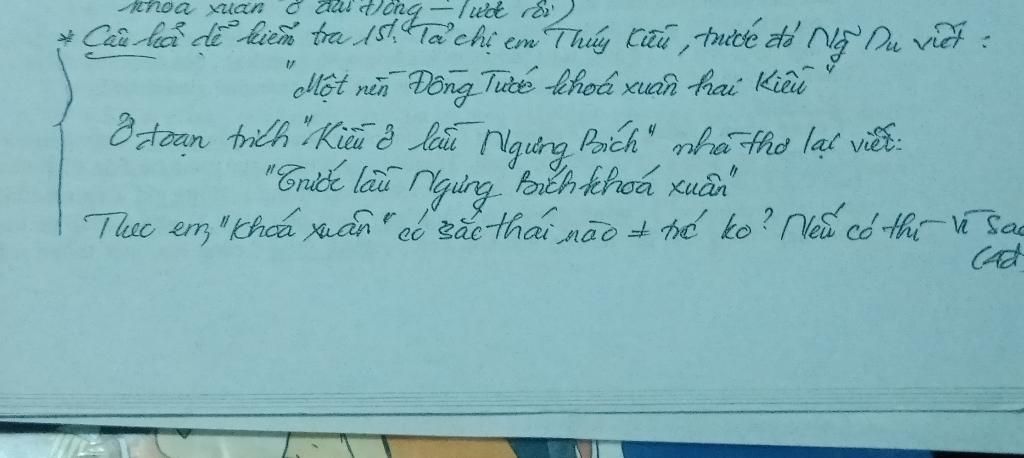 khoá xuân ở đài Đồng Tước rồi)
* Câu hỏi để kiểm tra 15': Tả chị em Thúy Kiều, trước đó Ng~ Du viết:
"Một nền Đồng Tước khoá xuân hai Kiều"
Ở đoạn trích "Kiều ở lầu Ngưng Bích" nhà thơ lại viết:
"Trước lầu Ngưng Bích khoá xuân"
Theo em, "Khoá xuân" có sắc thái nào ko? Nếu có thì vì sao